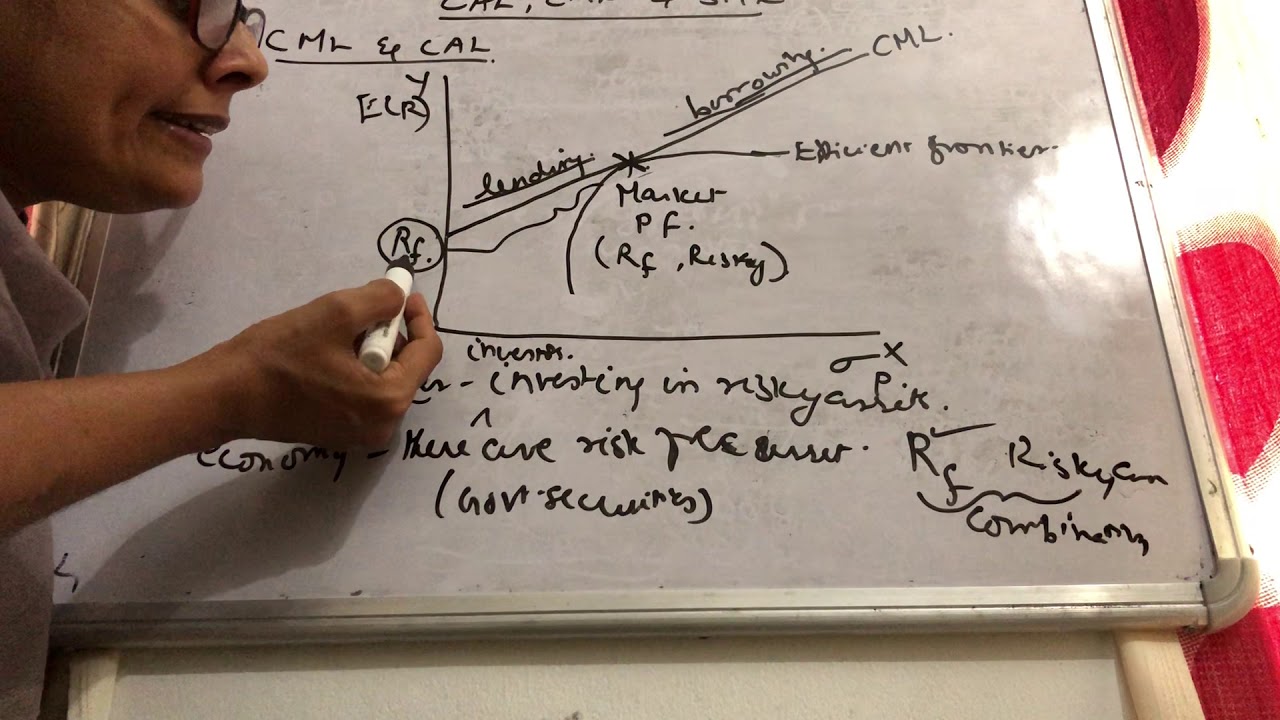 CAL, CML & SML
CML & CAL
Y
E(R)
borrowing.
CML.
lending.
Efficient frontier.
Market
PF.
(Rf, Risky)
Rf.
X
σp
investing in risky assets.
economy - there are risk free asset.
(Govt. securities)
Rf
Risky